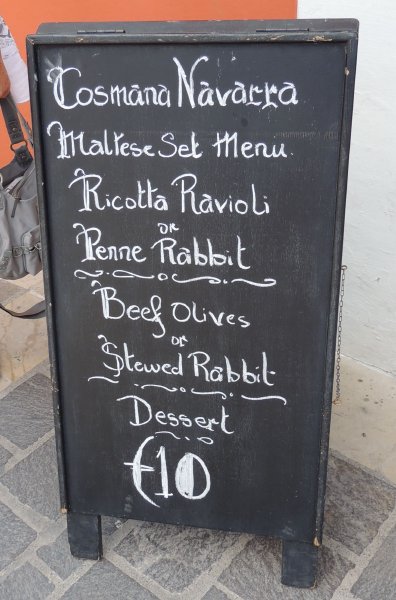 Cosmana Navarra
Maltese Set Menu
Ricotta Ravioli
or
Penne Rabbit
Beef Olives
or
Stewed Rabbit
Dessert
€10